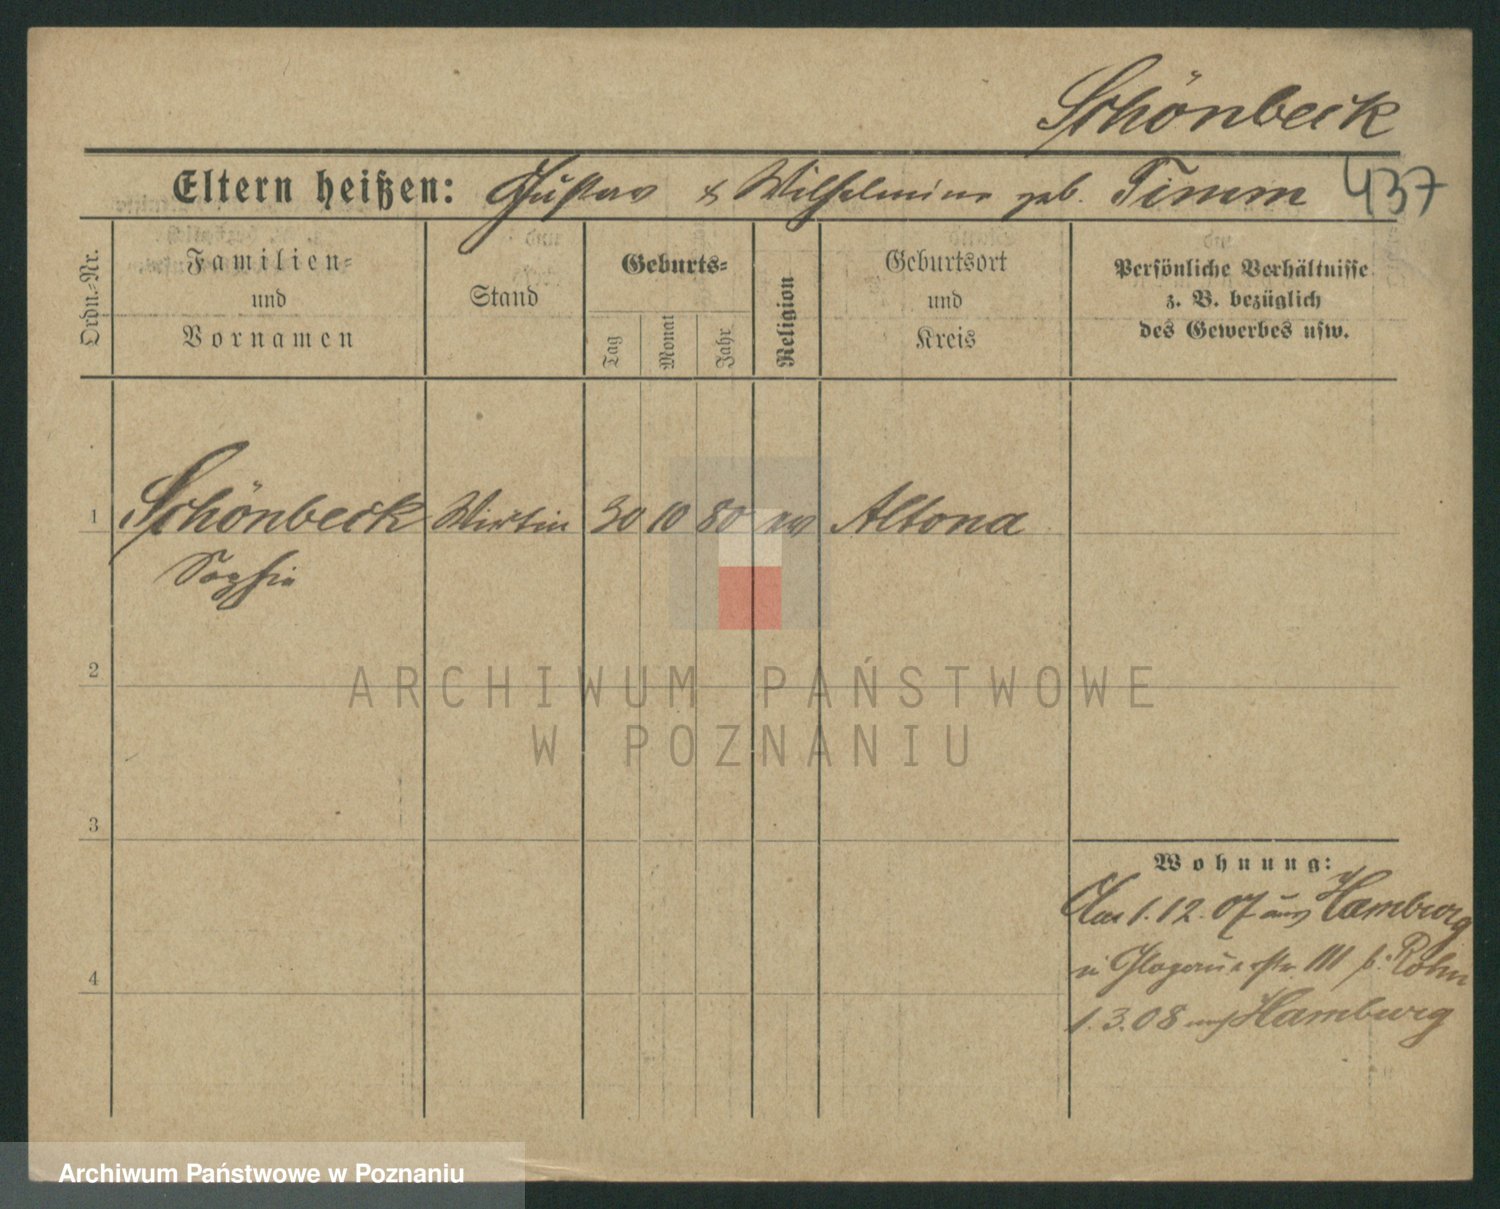 Schönbeck
Eltern heißen: Gustav & Wilhelmine geb. Timm 437
Ordn.-Nr.
Familien-
und
Vornamen
Stand
Geburts-
Tag
Monat
Jahr
Religion
Geburtsort
und
Kreis
Persönliche Verhältnisse
z. B. bezüglich
des Gewerbes usw.
1 Schönbeck Wirtin 30 10 80 ev Altona
Sophie
2
3
4
Wohnung:
1.12.07 aus Hamburg
Glogauerstr. 111 b. Rohn
1.3.08 nach Hamburg
ARCHIWUM PAŃSTWOWE
W POZNANIU
Archiwum Państwowe w Poznaniu